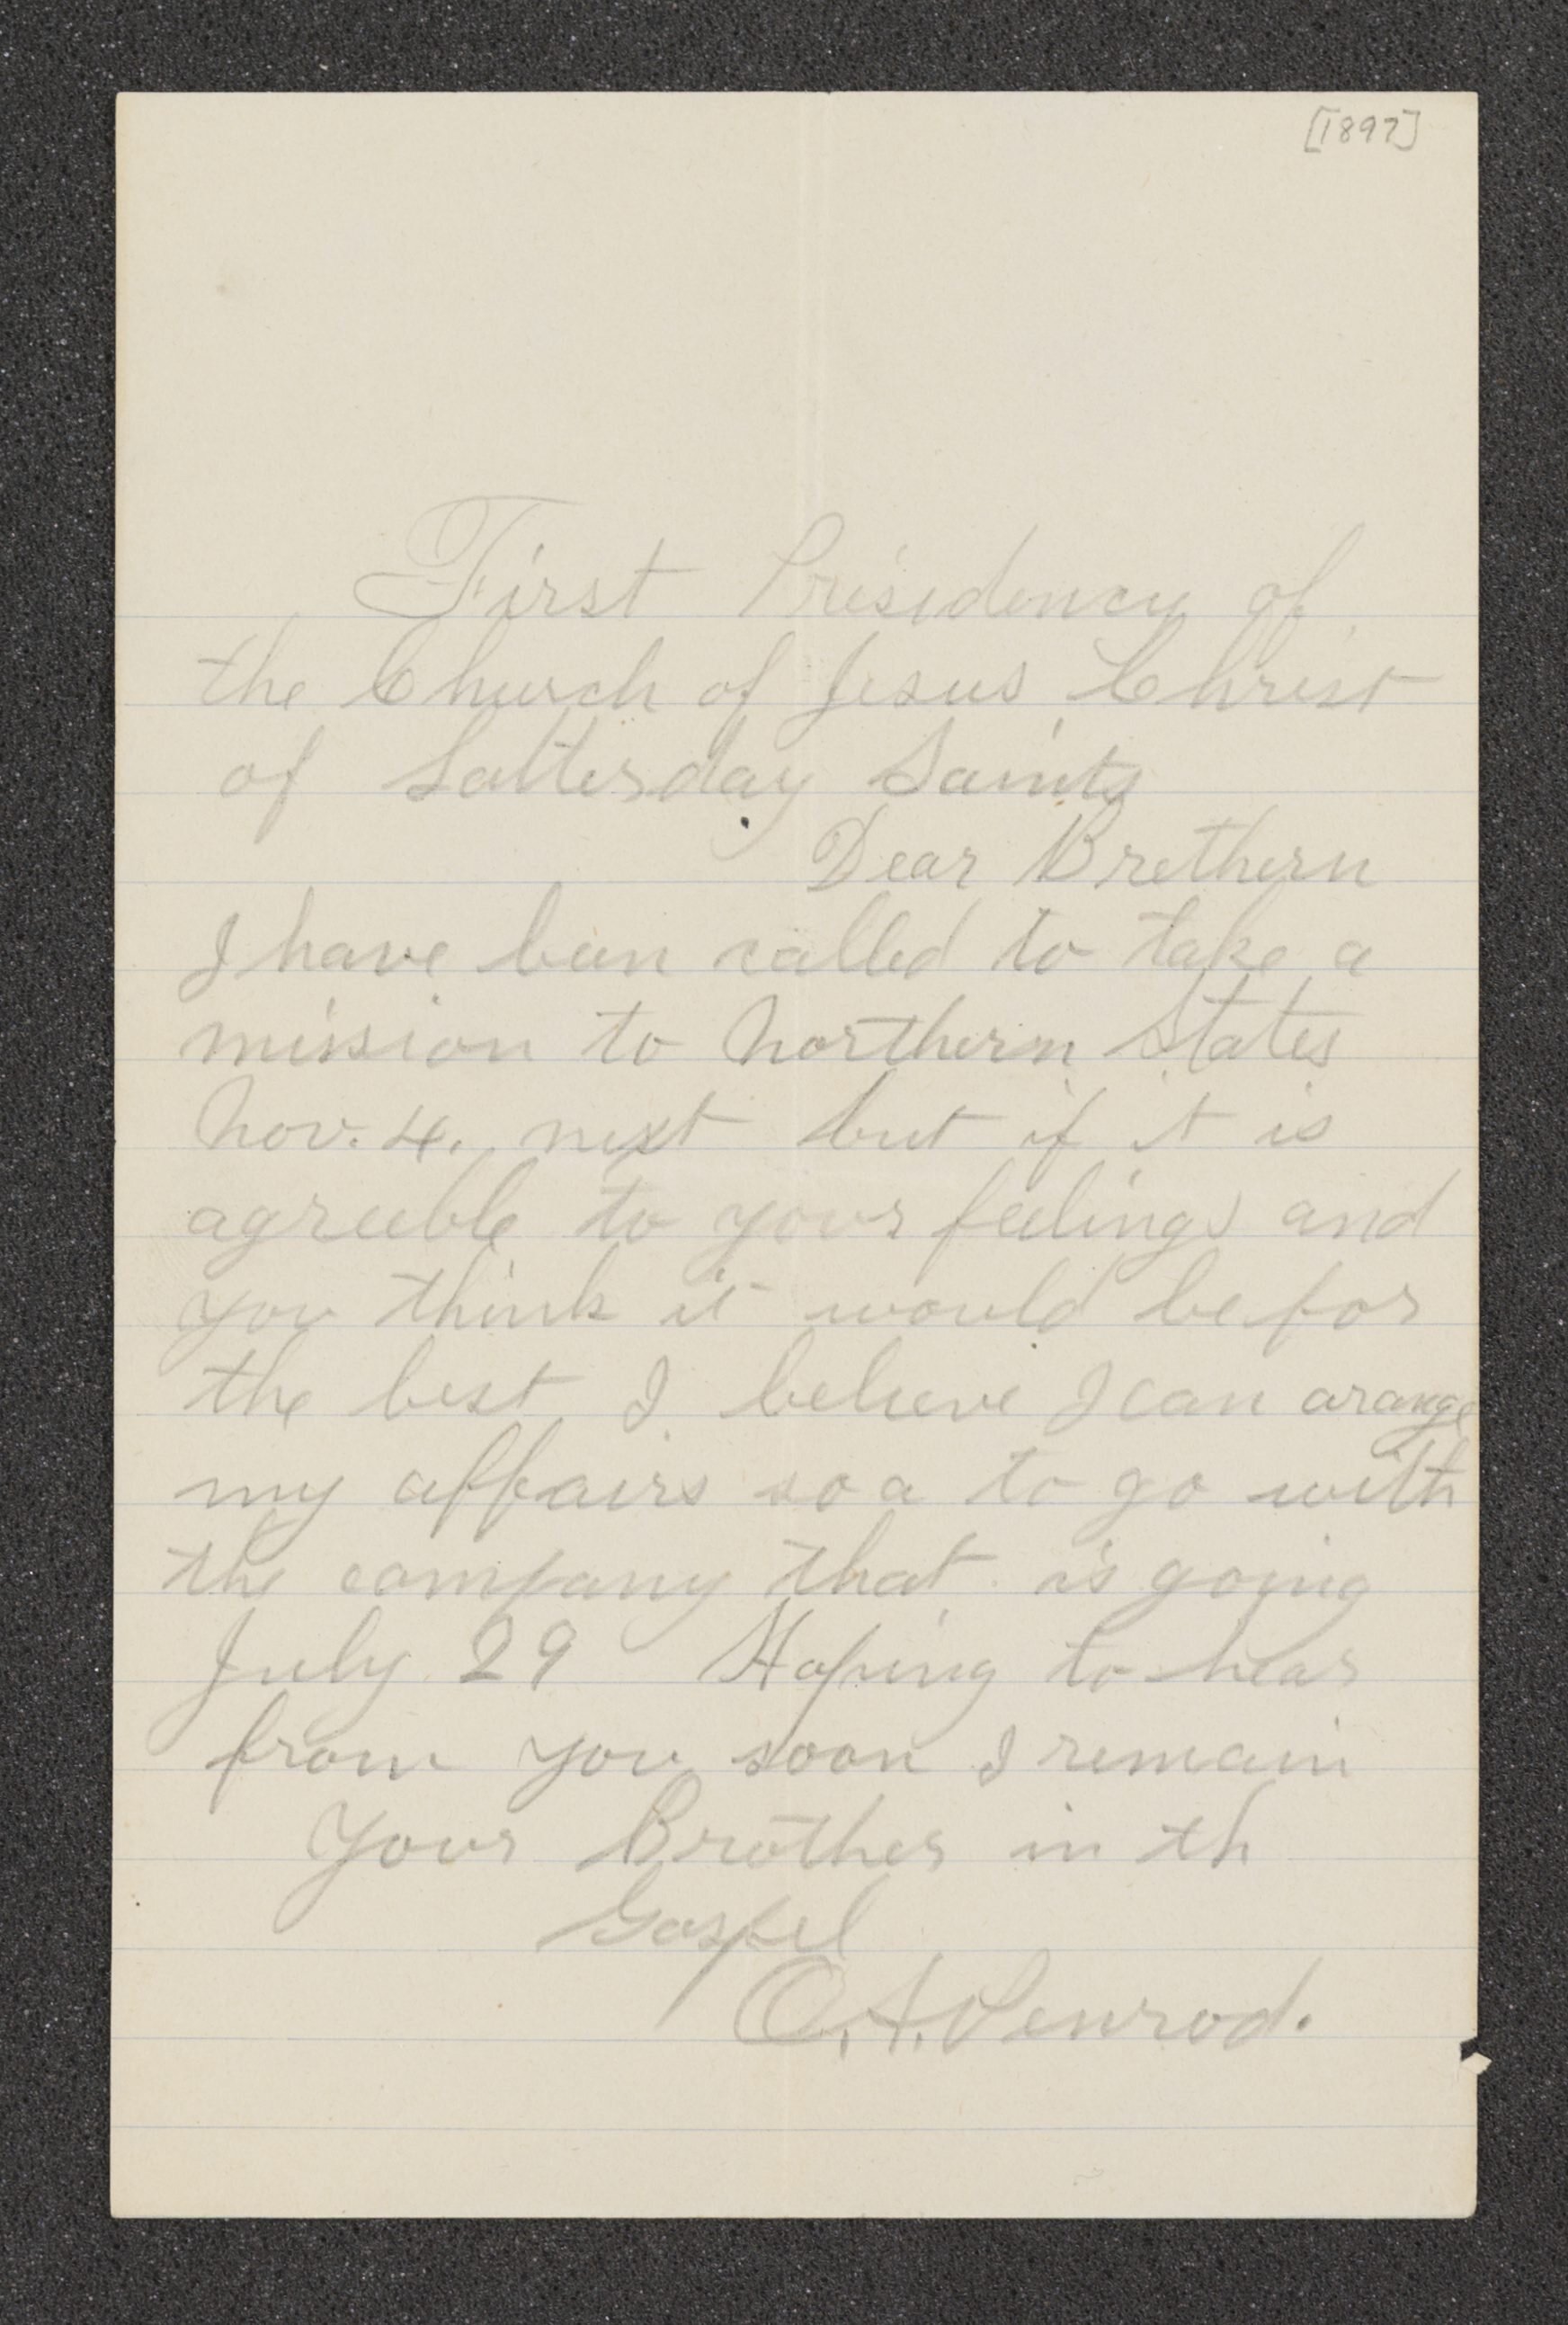 [1897]
First Presidency of
the Church of Jesus Christ
of Latterday Saints
Dear Brethern
I have been called to take a
mission to Northern States
Nov. 4. next but if it is
agreeble to your feelings and
you think it would be for
the best I believe I can arange
my affairs so a to go with
the company that is going
July 29 Hoping to hear
from you soon I remain
Your Brother in th
Gospel
O. A. Penrod.